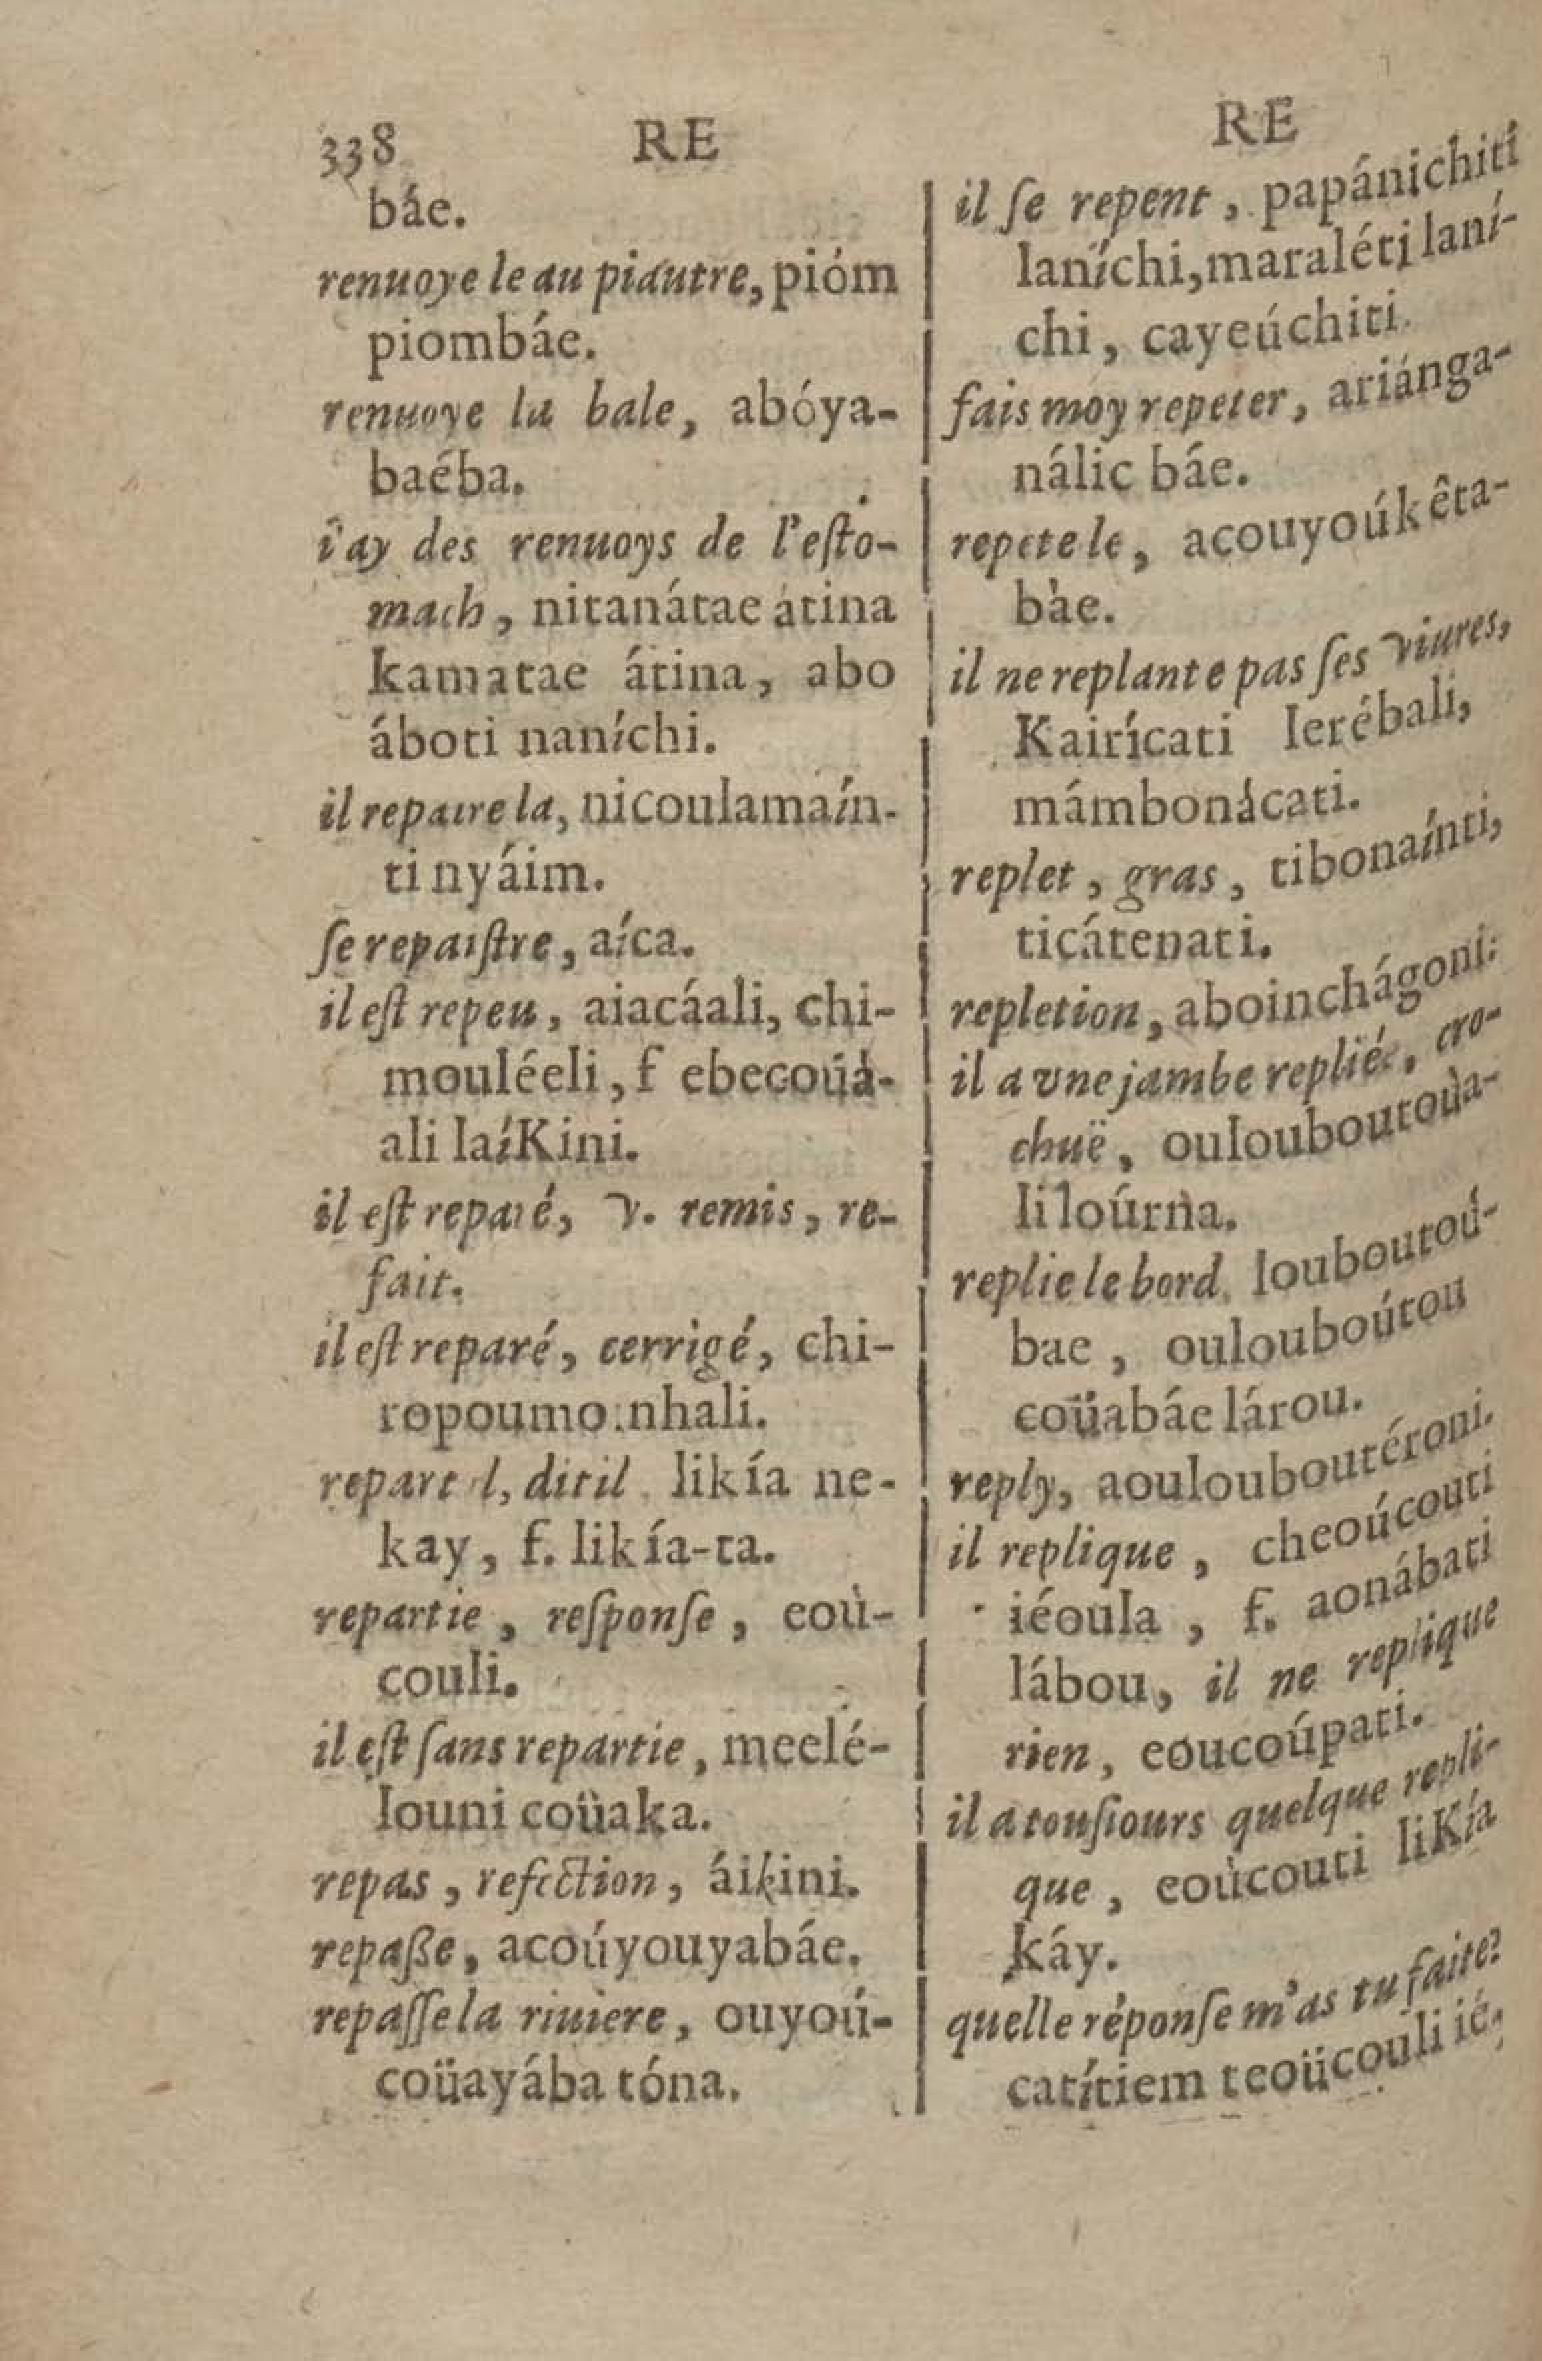 338 RE
báe.
renuoye le au piautre, pióm
piombáe.
renuoye la bale, abóya-
baéba.
i'ay des renuoys de l'esto-
mach, nitanátae átina
kamatae átina, abo
áboti naníchi.
il repaire la, nicoulamaín-
ti nyáim.
se repaistre, aíca.
il est repeu, aiacáali, chi-
mouléeli, f ebecoüá-
ali laíKini.
il est reparé, v. remis, re-
fait.
il est reparé, cerrigé, chi-
ropoumo.nhali.
repart l, dit il likía ne-
kay, f. likía-ta.
repartie, response, eoù-
couli.
il est sans repartie, meelé-
louni coüaka.
repas, refection, áikini.
repaße, acoúyouyabáe.
repasse la riuiere, ouyoú-
coüayába tóna.
RE
il se repent, papánichiti
laníchi, maraléti laní-
chi, cayeúchiti.
fais moy repeter, ariánga-
nálic báe.
repete le, acouyoúkêta-
bàe.
il ne replante pas ses viures,
Kairícati Ierébali,
mámbonácati.
replet, gras, tibonaínti,
ticátenati.
repletion, aboinchágoni.
il a vne jambe repliée, cro-
chuë, oulouboutoùa-
li loúrna.
replie le bord, louboutoú-
bae, oulouboútou
coüabáe lárou.
reply, aoulouboutéroni.
il replique, cheoúcouti
iéoula, f. aonábati
lábou, il ne replique
rien, eoucoúpati.
il a tousiours quelque repli-
que, eoùcouti liKía
káy.
quelle réponse m'as tu faite?
catítiem teoücouli ié,